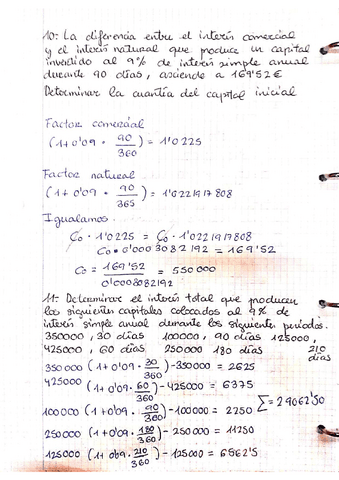 10: La diferencia entre el interés comercial
y el interés natural que produce un capital
invertido al 9% de interés simple anual
durante 90 días, asciende a 169'52€
Determinar la cuantía del capital inicial
Factor comercial
(1+0'09 · 90/360) = 1'0225
Factor natural
(1+0'09 · 90/365) = 1'0221917808
Igualamos
C₀ · 1'0225 = C₀ · 1'0221917808
C₀ · 0'0003082192 = 169'52
C₀ = 169'52 / 0'0003082192 = 550000
11: Determinar el interés total que producen
los siguientes capitales colocados al 9% de
interés simple anual durante los siguientes periodos.
350000, 30 días 100000, 90 días 125000,
425000, 60 días 250000 180 días 210 días
350000 (1+0'09 · 30/360) - 350000 = 2625
425000 (1+0'09 · 60/360) - 425000 = 6375
100000 (1+0'09 · 90/360) - 100000 = 2250 Σ = 29062'50
250000 (1+0'09 · 180/360) - 250000 = 11250
125000 (1+0'09 · 210/360) - 125000 = 6562'5